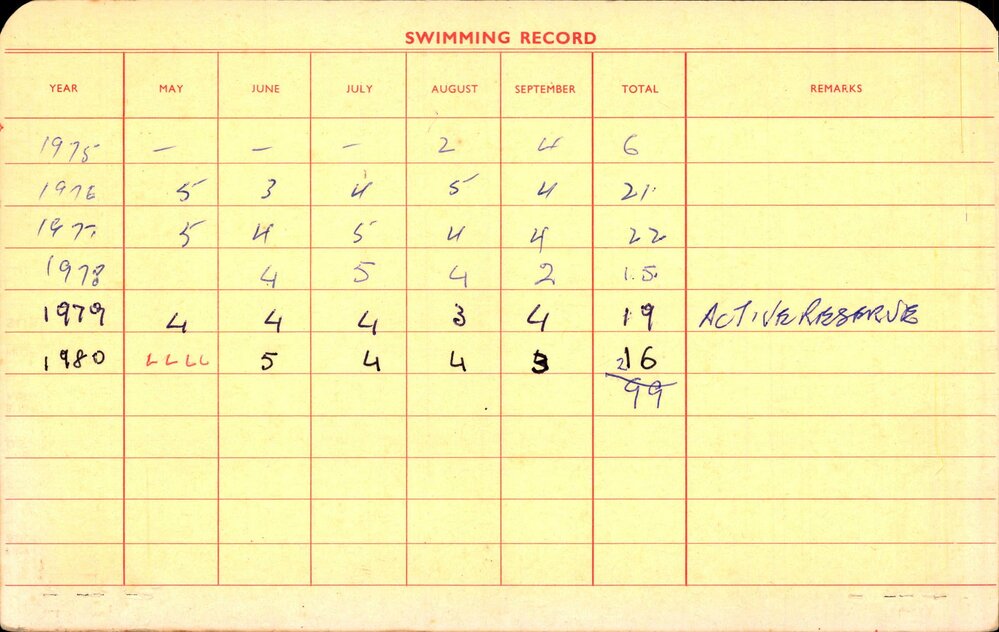 SWIMMING RECORD
YEAR MAY JUNE JULY AUGUST SEPTEMBER TOTAL REMARKS
1975 – – – 2 4 6
1976 5 3 4 5 4 21.
1977. 5 4 5 4 4 22
1978 4 5 4 2 1.5.
1979 4 4 4 3 4 19 ACTIVE RESERVE
1980 L L L L 5 4 4 3 16
99